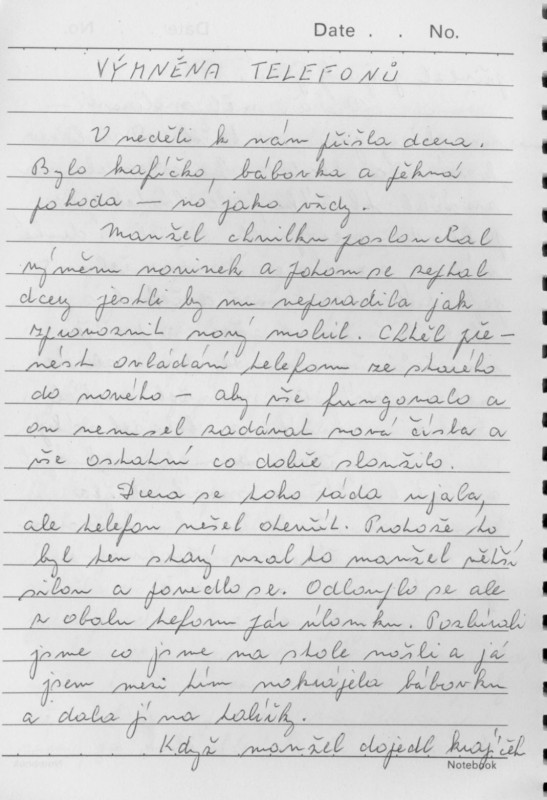 Date . . No.
VÝMNĚNA TELEFONŮ
V neděli k nám přišla dcera.
Bylo kafíčko, bábovka a pěkná
pohoda – no jako vždy.
Manžel chvilku poslouchal
výměnu novinek a potom se zeptal
dcery jestli by mu neporadila jak
zprovoznit nový mobil. Chtěl pře-
nést ovládání telefonu ze starého
do nového – aby vše fungovalo a
on nemusel zadávat nová čísla a
vše ostatní co dobře sloužilo.
Dcera se toho ráda ujala,
ale telefon nešel otevřít. Protože to
byl ten starý vzal to manžel větší
silou a povedlo se. Odlouplo se ale
z obalu tefonu pár úlomku. Pozbírali
jsme co jsme na stole našli a já
jsem mezi tím nakrájela bábovku
a dala jí na talířky.
Když manžel dojedl krajíčeh
Notebook